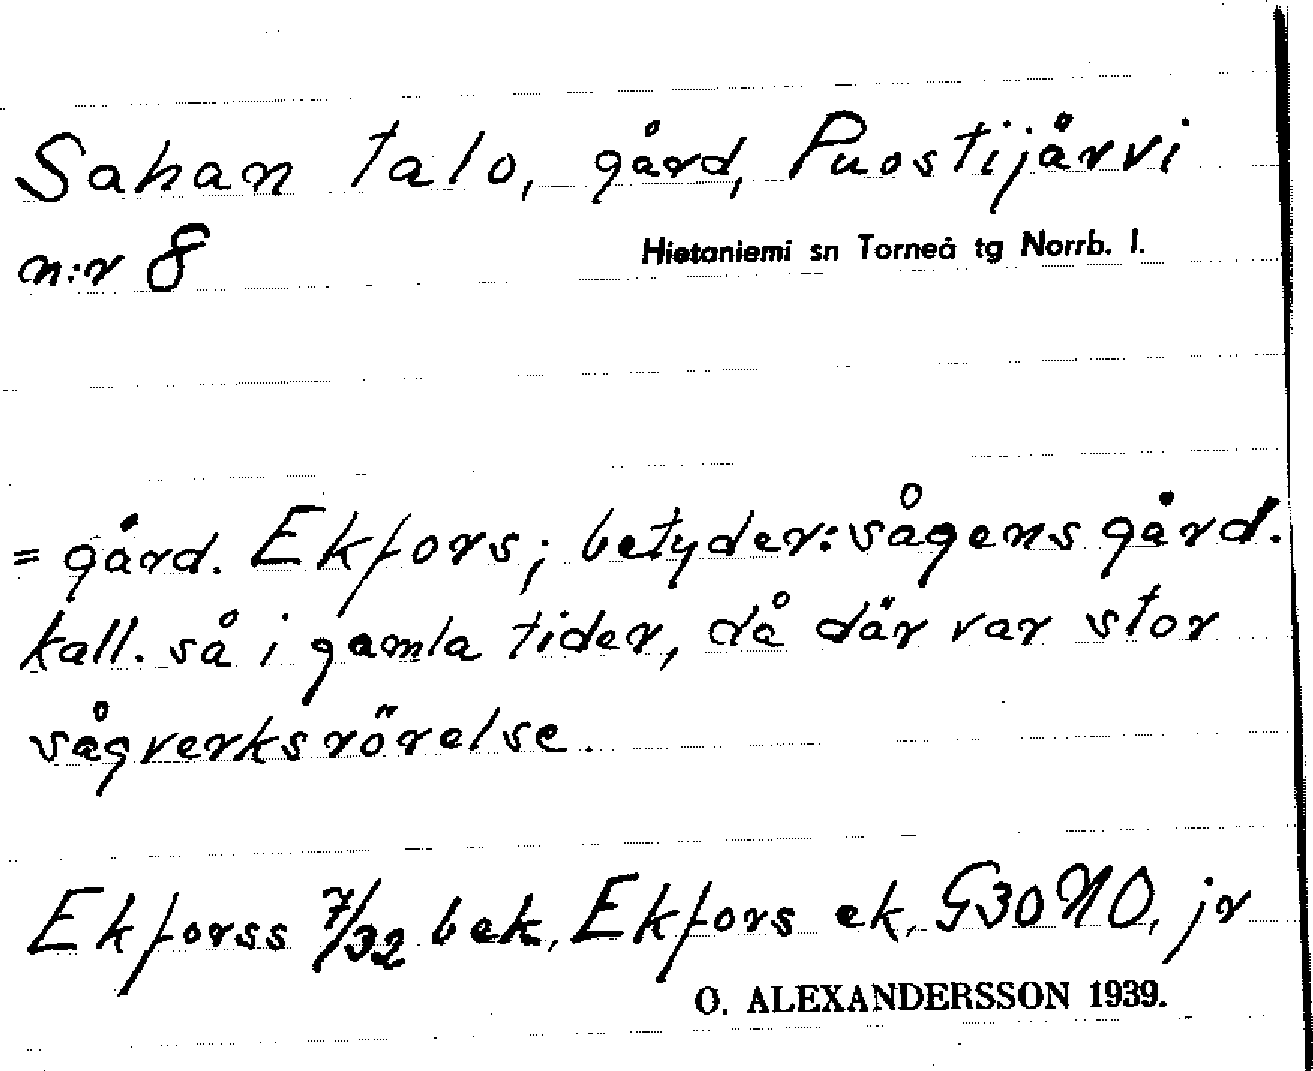 Sahan talo, gård, Puostijärvi
n:r 8
Hietaniemi sn Torneå tg Norrb. l.
= gård. Ekfors; betyder: sågens gård.
kall. så i gamla tider, då där var stor
sågverksrörelse.
Ekforss 7/32 bek, Ekfors ek, G30NO, jr
O. ALEXANDERSSON 1939.